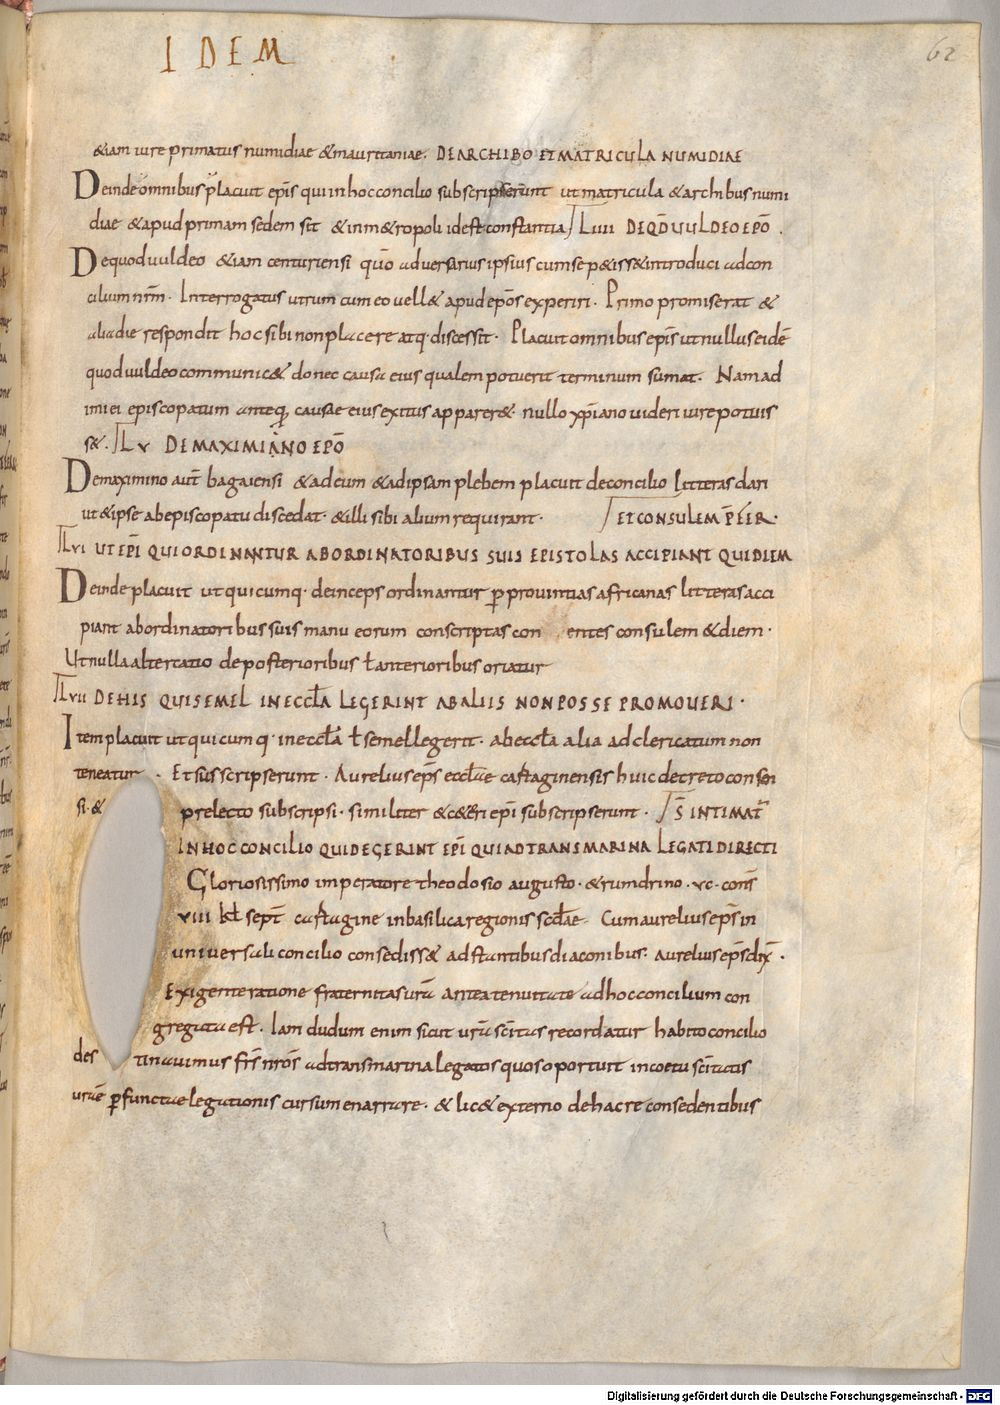 IDEM
62
&iam iure primatus numidiae & mauritaniae. DE ARCHIBO ET MATRICULA NUMIDIAE
Deinde omnibus placuit ep̄is qui in hoc concilio subscripserunt ut matricula & archibus numi
diae & apud primam sedem sit & in m&ropoli id est constantia LIIII DE QD̄UULDEO EPŌ.
De quoduuldeo &iam centuriensi quō aduersarius ipsius cum se p&iss& introduci ad con
cilium nr̄m. Interrogatus utrum cum eo uell& apud epōs experiri. Primo promiserat &
alia die respondit hoc sibi non placere atq· discessit. Placuit omnibus ep̄is ut nullus eidē
quoduuldeo communic& donec causa eius qualem potuerit terminum sumat. Nam ad
imi ei episcopatum anteq̄ causae eius exitus apparer&. nullo xp̄iano uideri iure potuis
s&. LV DE MAXIMIANO EPŌ
De maximino aut̄ bagaiensi & ad eum & ad ipsam plebem placuit de concilio litteras dari
ut & ipse ab episcopatu discedat. & illi sibi alium requirant. ET CONSULEM P̄FER·
LVI UT EP̄I QUI ORDINANTUR AB ORDINATORIBUS SUIS EPISTOLAS ACCIPIANT QUI DIEM
Deinde placuit ut quicumq· deinceps ordinantur p̄ prouintias africanas litteras acci
piant ab ordinatoribus suis manu eorum conscriptas con entes consulem & diem·
Ut nulla altercatio de posterioribus ł anterioribus oriatur
LVII DE HIS QUI SEMEL IN ECCL̄A LEGERINT AB ALIIS NON POSSE PROMOUERI·
Item placuit ut quicumq· in eccl̄a ł semel legerit. ab eccl̄a alia ad clericatum non
teneatur. Et susscripserunt. Aurelius ep̄s eccl̄ae castaginensis huic decreto consen
si. & prelecto subscripsi. similiter & c&eri ep̄i subscripserunt. S̄ INTIMAT̄
IN HOC CONCILIO QUID EGERINT EP̄I QUI AD TRANSMARINA LEGATI DIRECTI
Gloriosissimo imperatore theodosio augusto. & rumdrino. vc. cons̄
VIII kl̄ sept̄ castagine in basilica regionis scd̄ae Cum aurelius ep̄s in
uniuersali concilio consediss& adstantibus diaconibus. aurelius ep̄s dix̄.
Exigente ratione fraternitas ur̄a ante a tenuitate ad hoc concilium con
gregata est. Iam dudum enim sicut ur̄a scītas recordatur habito concilio
destinauimus fr̄s nrōs ad transmarina legatos quos oportuit in coetu scītatis
ur̄ae p̄functae legationis cursum enarrare. & lic& externo de hac re consedentibus
Digitalisierung gefördert durch die Deutsche Forschungsgemeinschaft - DFG